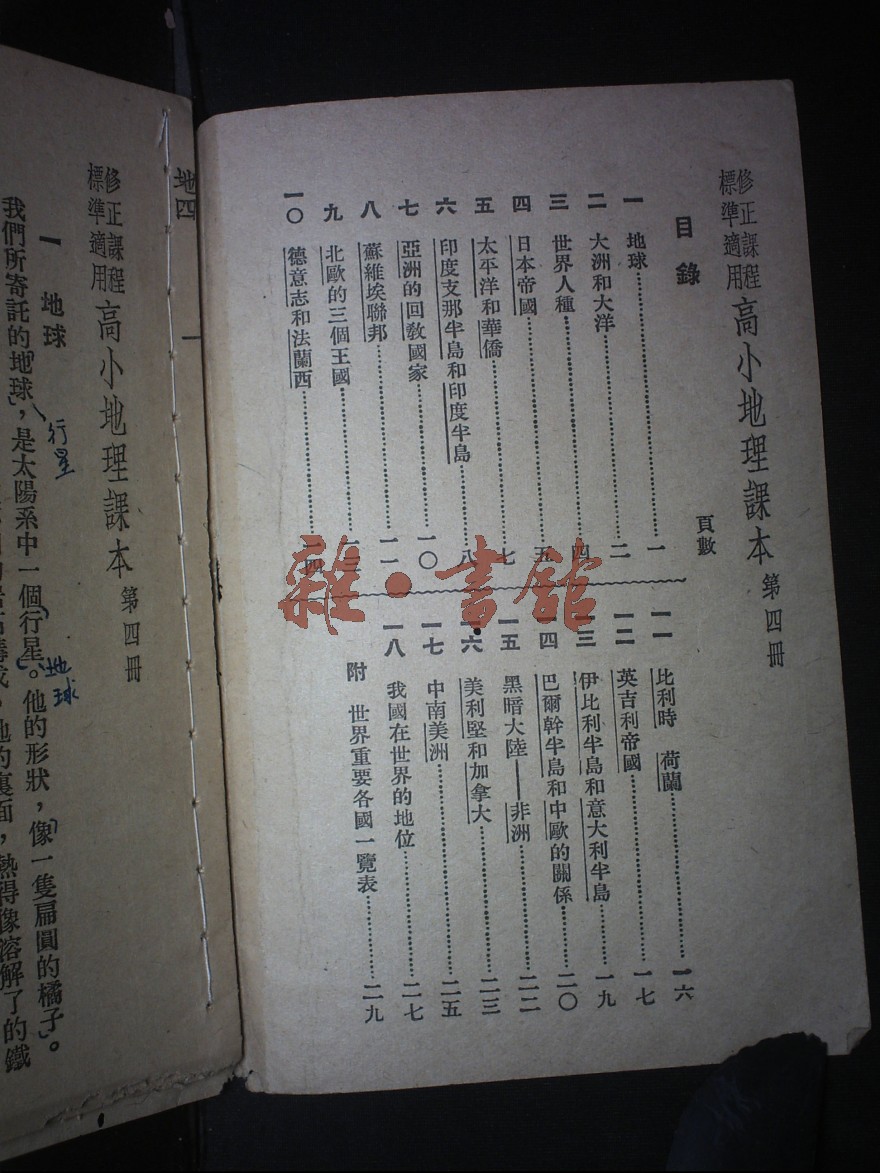 修正課程
標準適用
高小地理課本 第四冊
目錄
頁數
一 地球 一
二 大洲和大洋 二
三 世界人種 四
四 日本帝國 五
五 太平洋和華僑 七
六 印度支那半島和印度半島 八
七 亞洲的回敎國家 一〇
八 蘇維埃聯邦 一一
九 北歐的三個王國 一三
一〇 德意志和法蘭西 一四
一一 比利時 荷蘭 一六
一二 英吉利帝國 一七
一三 伊比利半島和意大利半島 一九
一四 巴爾幹半島和中歐的關係 二〇
一五 黑暗大陸——非洲 二二
一六 美利堅和加拿大 二三
一七 中南美洲 二五
一八 我國在世界的地位 二七
附 世界重要各國一覽表 二九
雜·書館
地四 一
修正課程
標準適用
高小地理課本 第四冊
一 地球
行星
地球
我們所寄託的地球，是太陽系中一個行星。他的形狀，像一隻扁圓的橘子。
他的裏面，熱得像溶解了的鐵